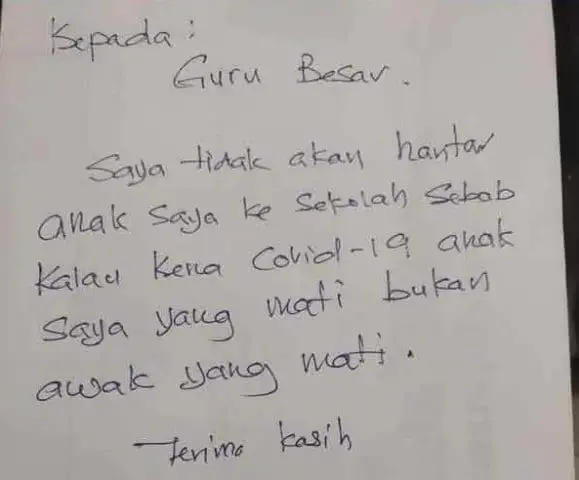 Kepada :
Guru Besar.
Saya tidak akan hantar
anak saya ke sekolah sebab
kalau kena Covid-19 anak
saya yang mati bukan
awak yang mati.
Terima kasih